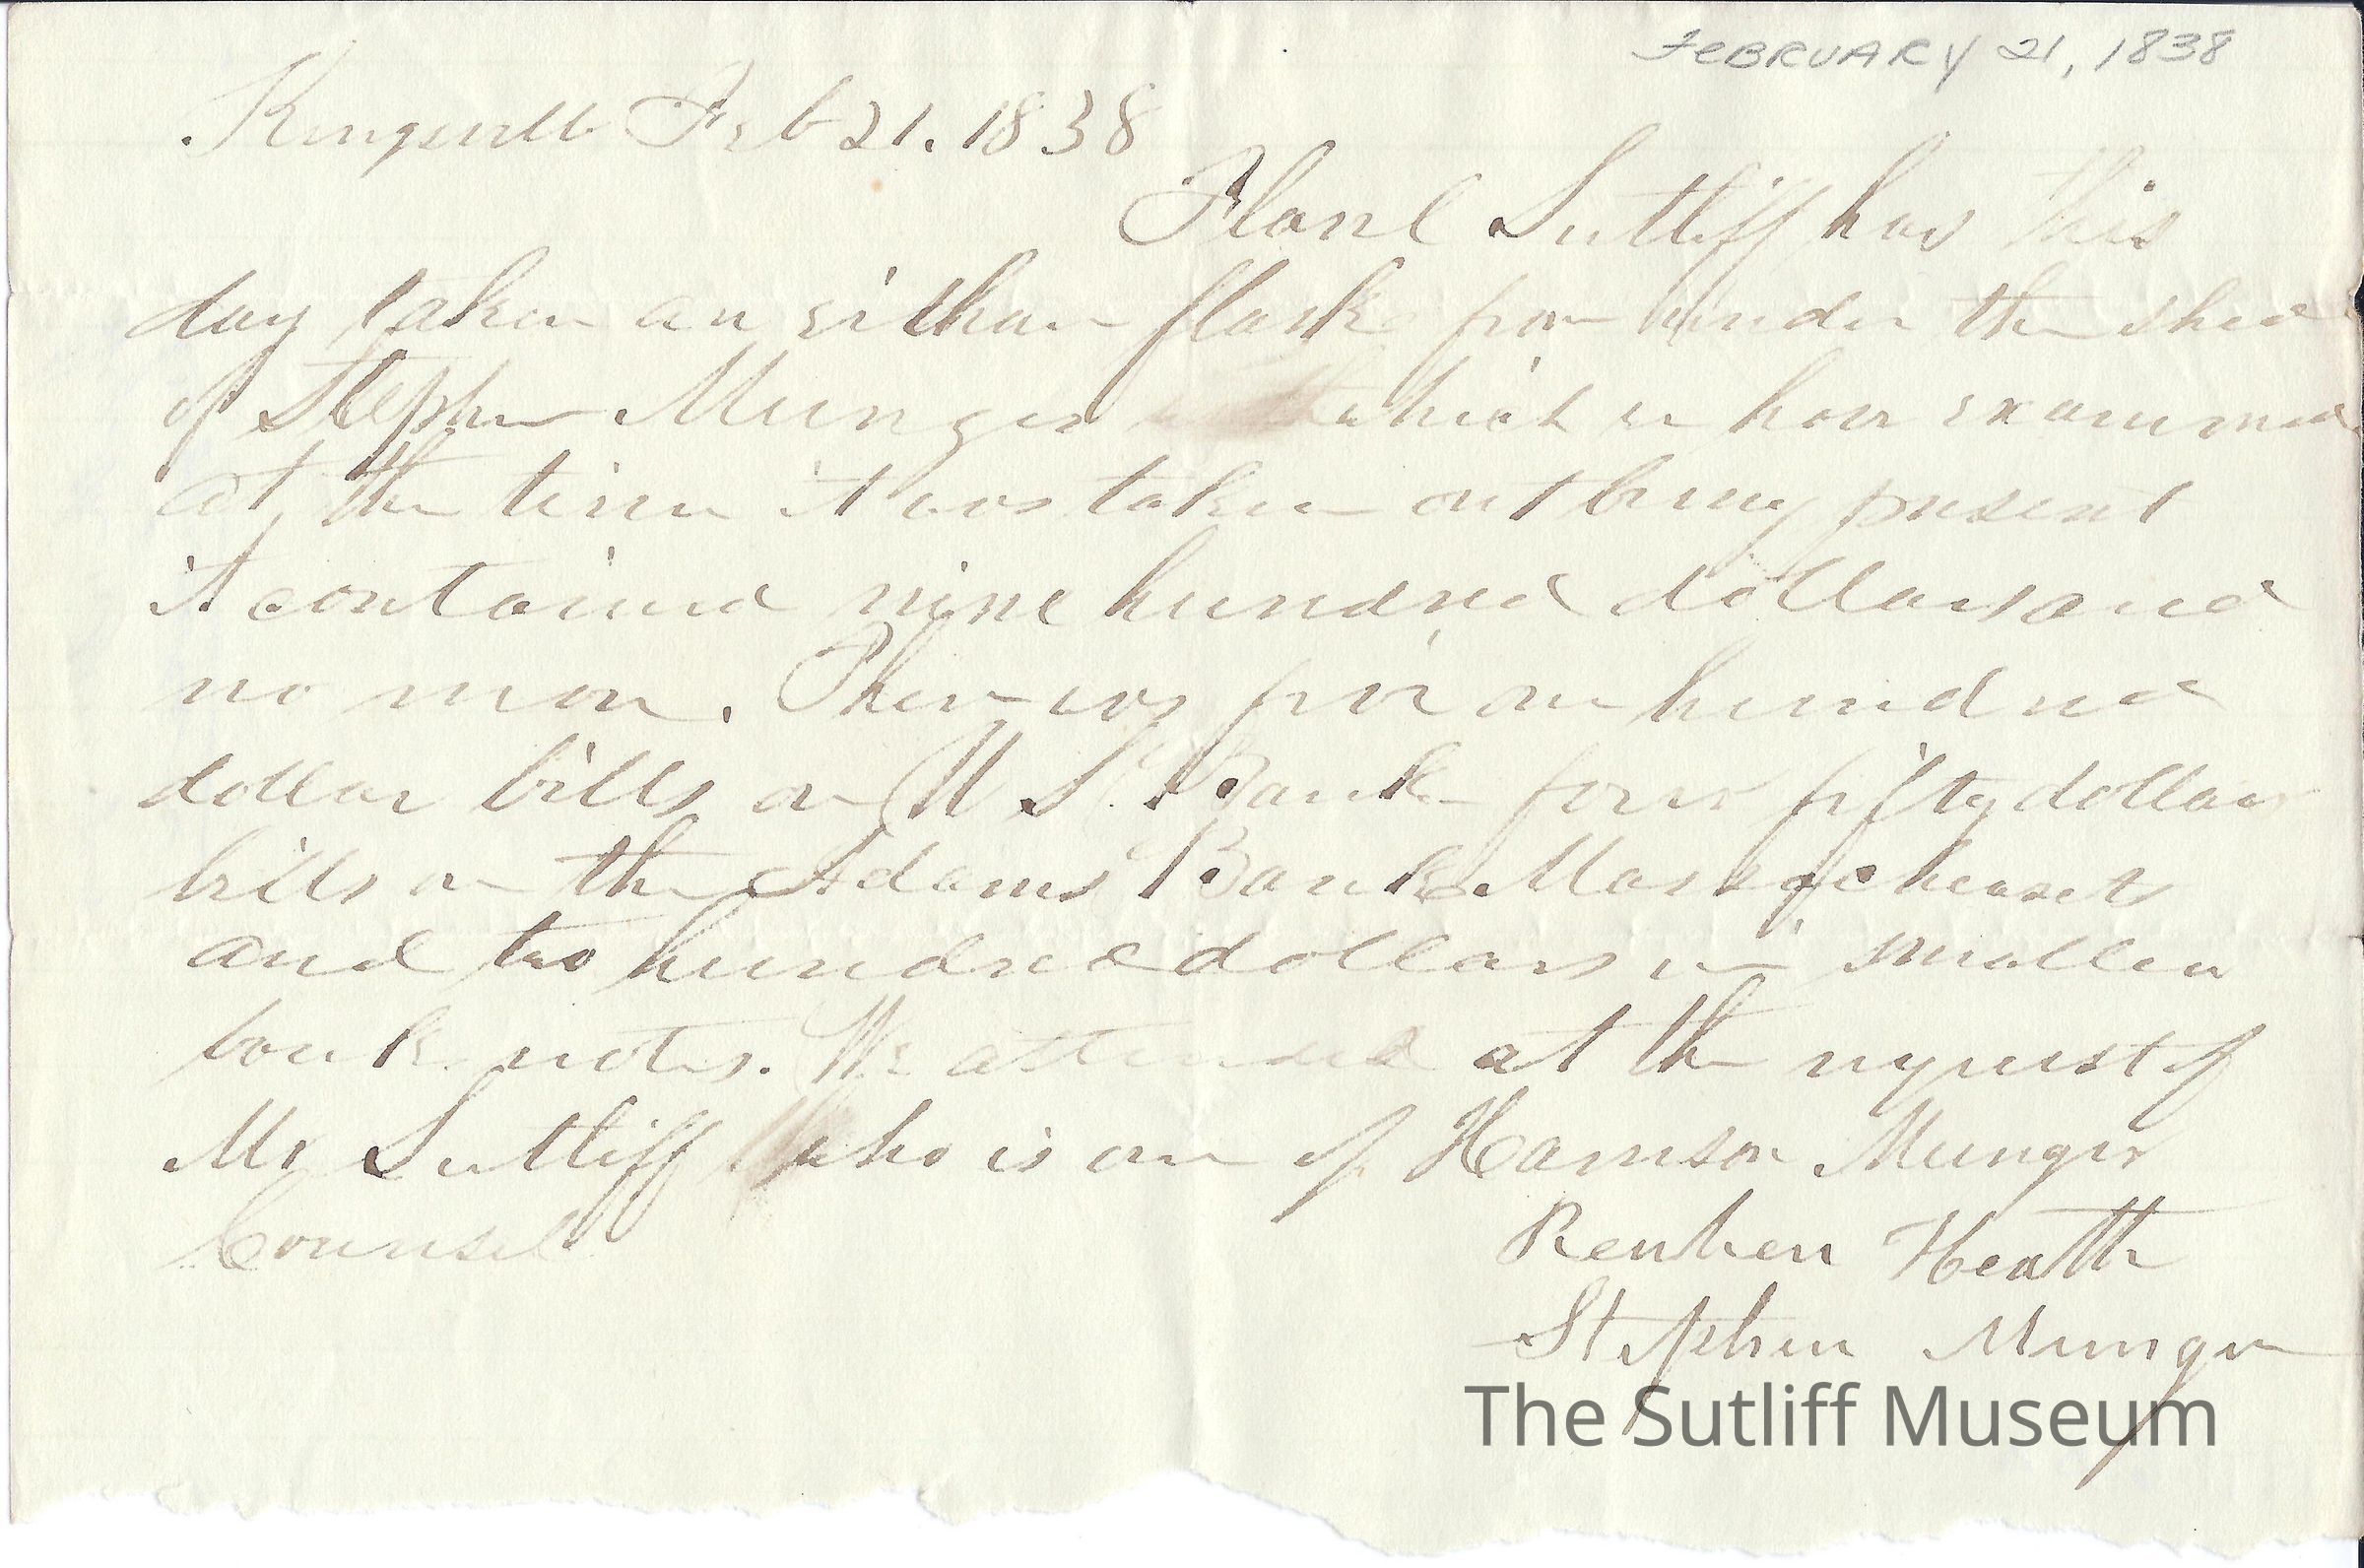 FEBRUARY 21, 1838
Kingsville Feb 21. 1838
Flavel Sutliff has this
day taken an earthen flask from under the shed
of Stephen Munger which we have examined
at the time it was taken out being present
it contained nine hundred dollars and
no more. There was five one hundred
dollar bills on U.S. Bank four fifty dollar
bills on the Adams Bank Massachusets
and two hundred dollars in smaller
bank notes. We attended at the request of
Mr Sutliff who is one of Harrison Munger
Counsel
Reuben Heath
Stephen Munger
The Sutliff Museum